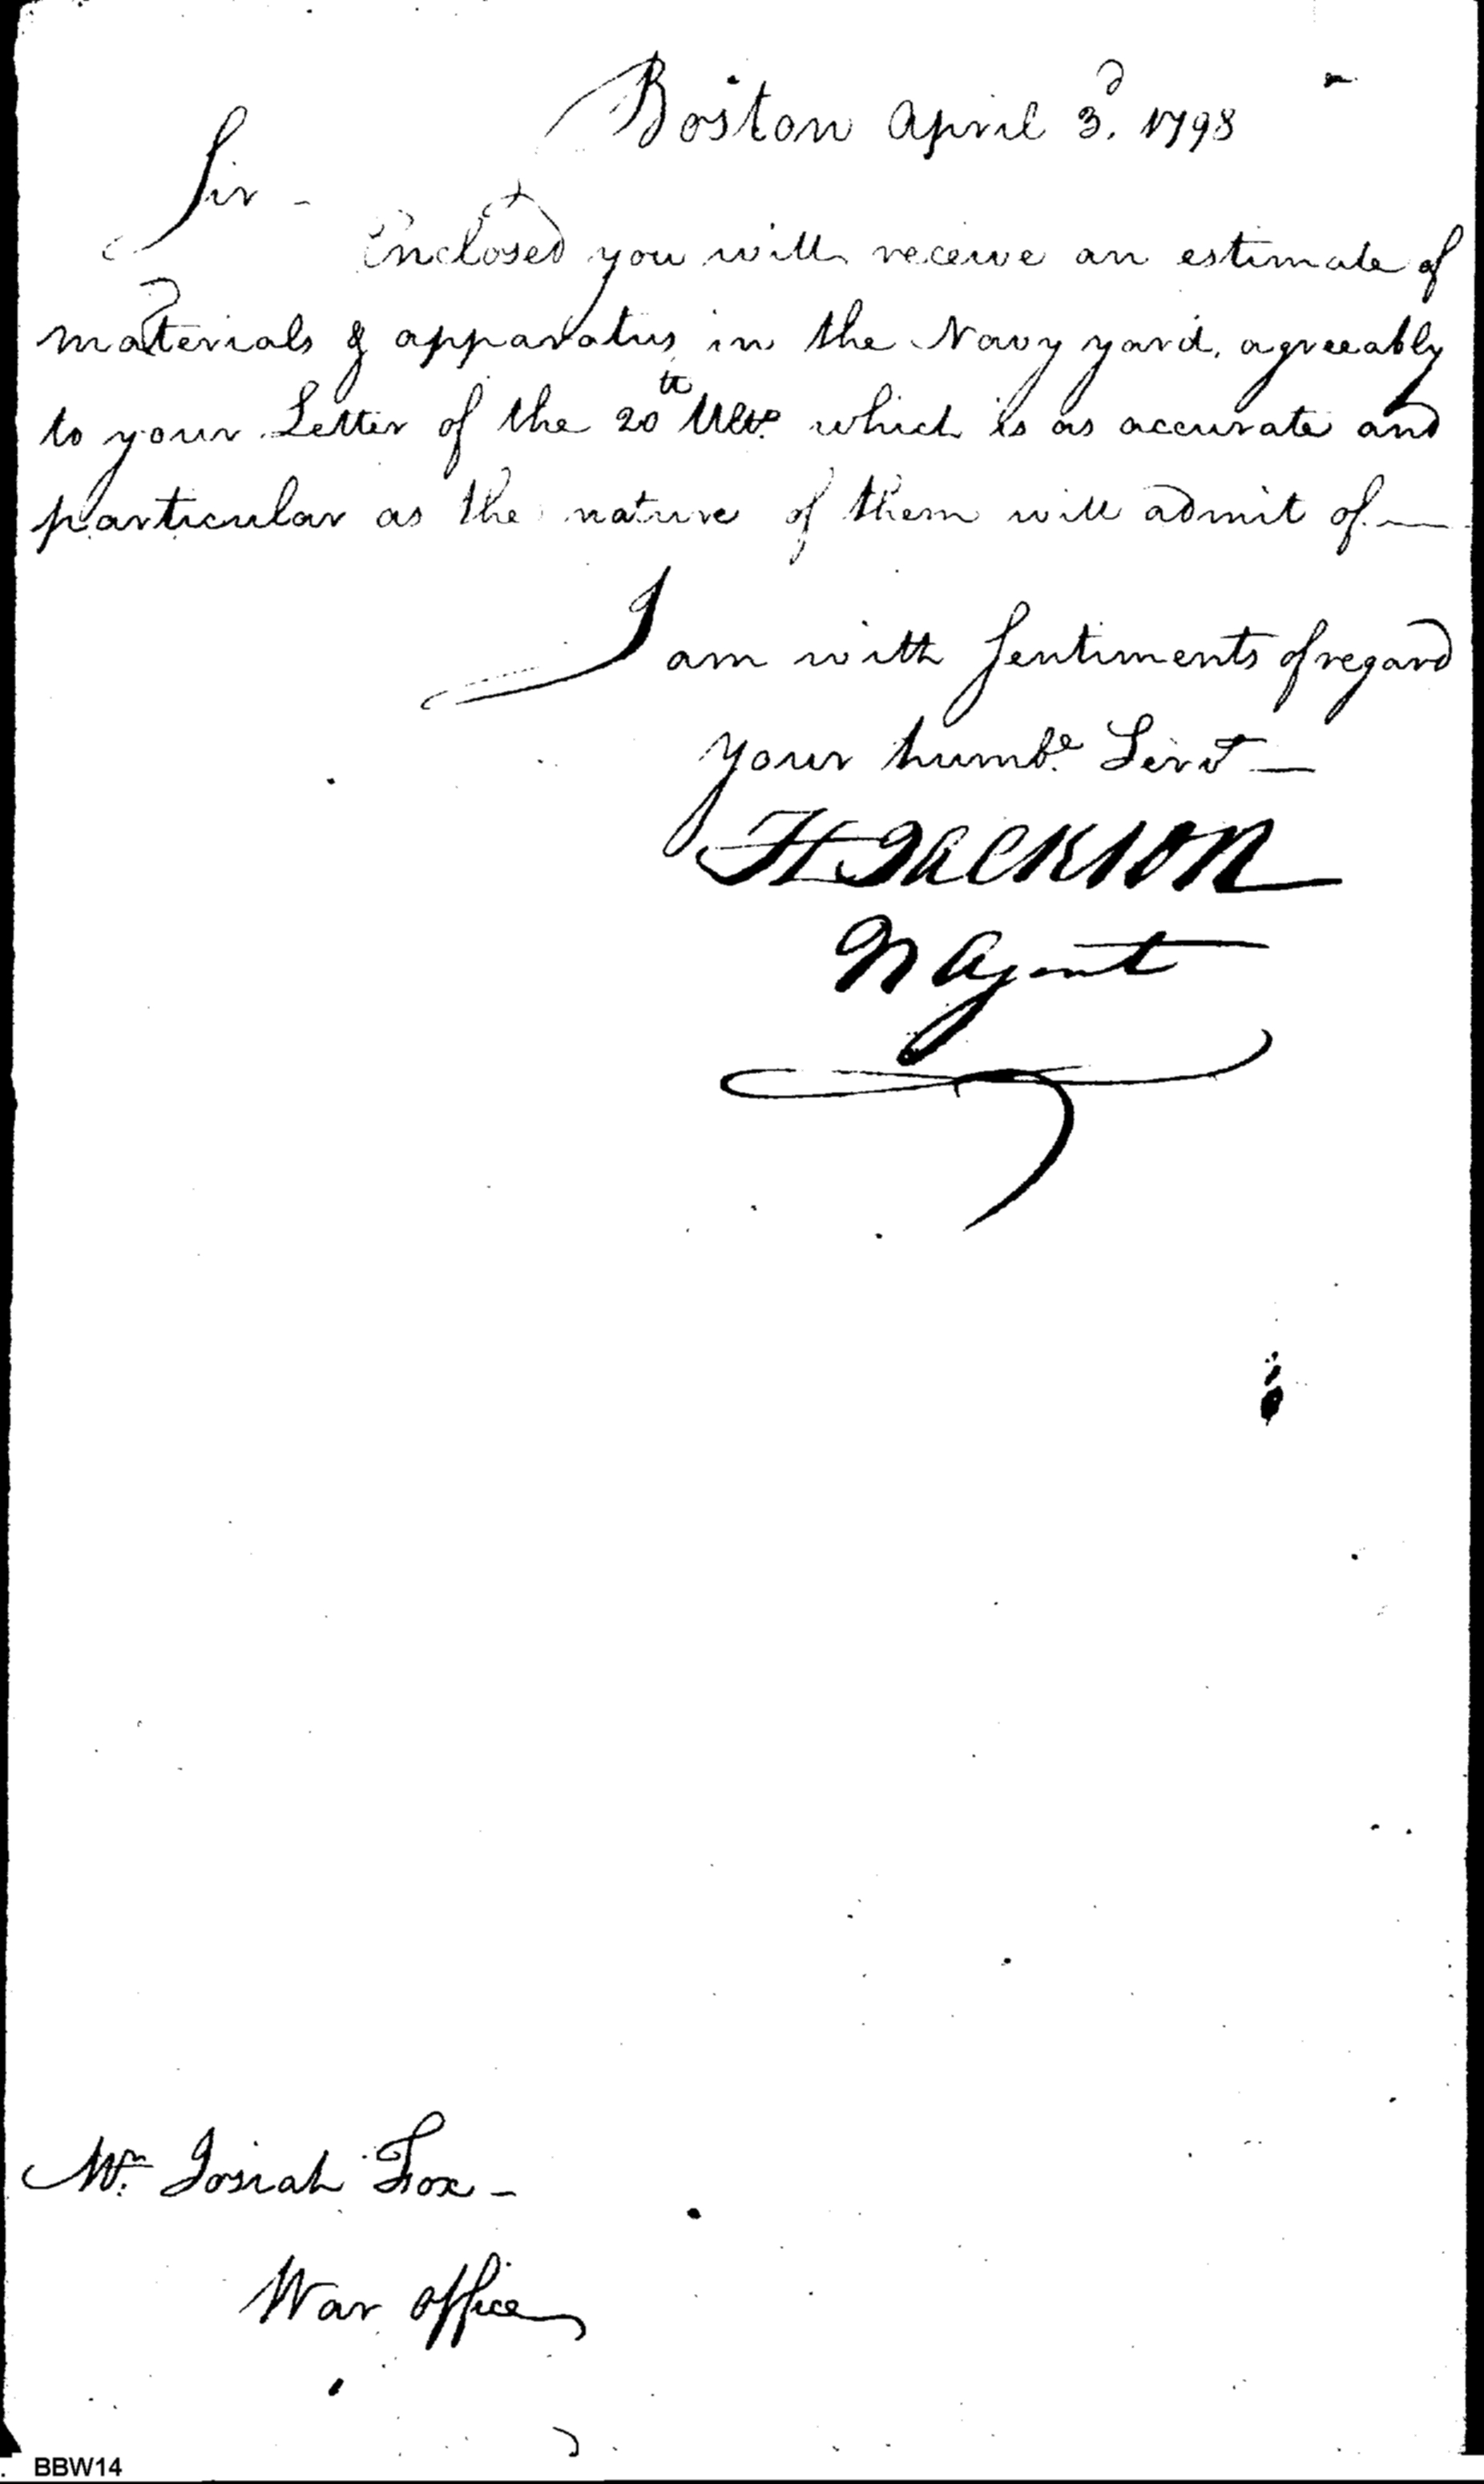 Boston April 3d. 1798
Sir -
Enclosed you will receive an estimate of
materials & apparatus in the Navy yard, agreeably
to your Letter of the 20th Ulto. which is as accurate and
particular as the nature of them will admit of —
I am with Sentiments of regard
your humbe. Servt —
H JACKSON
N Agent
Mr. Josiah Fox -
War office
BBW14